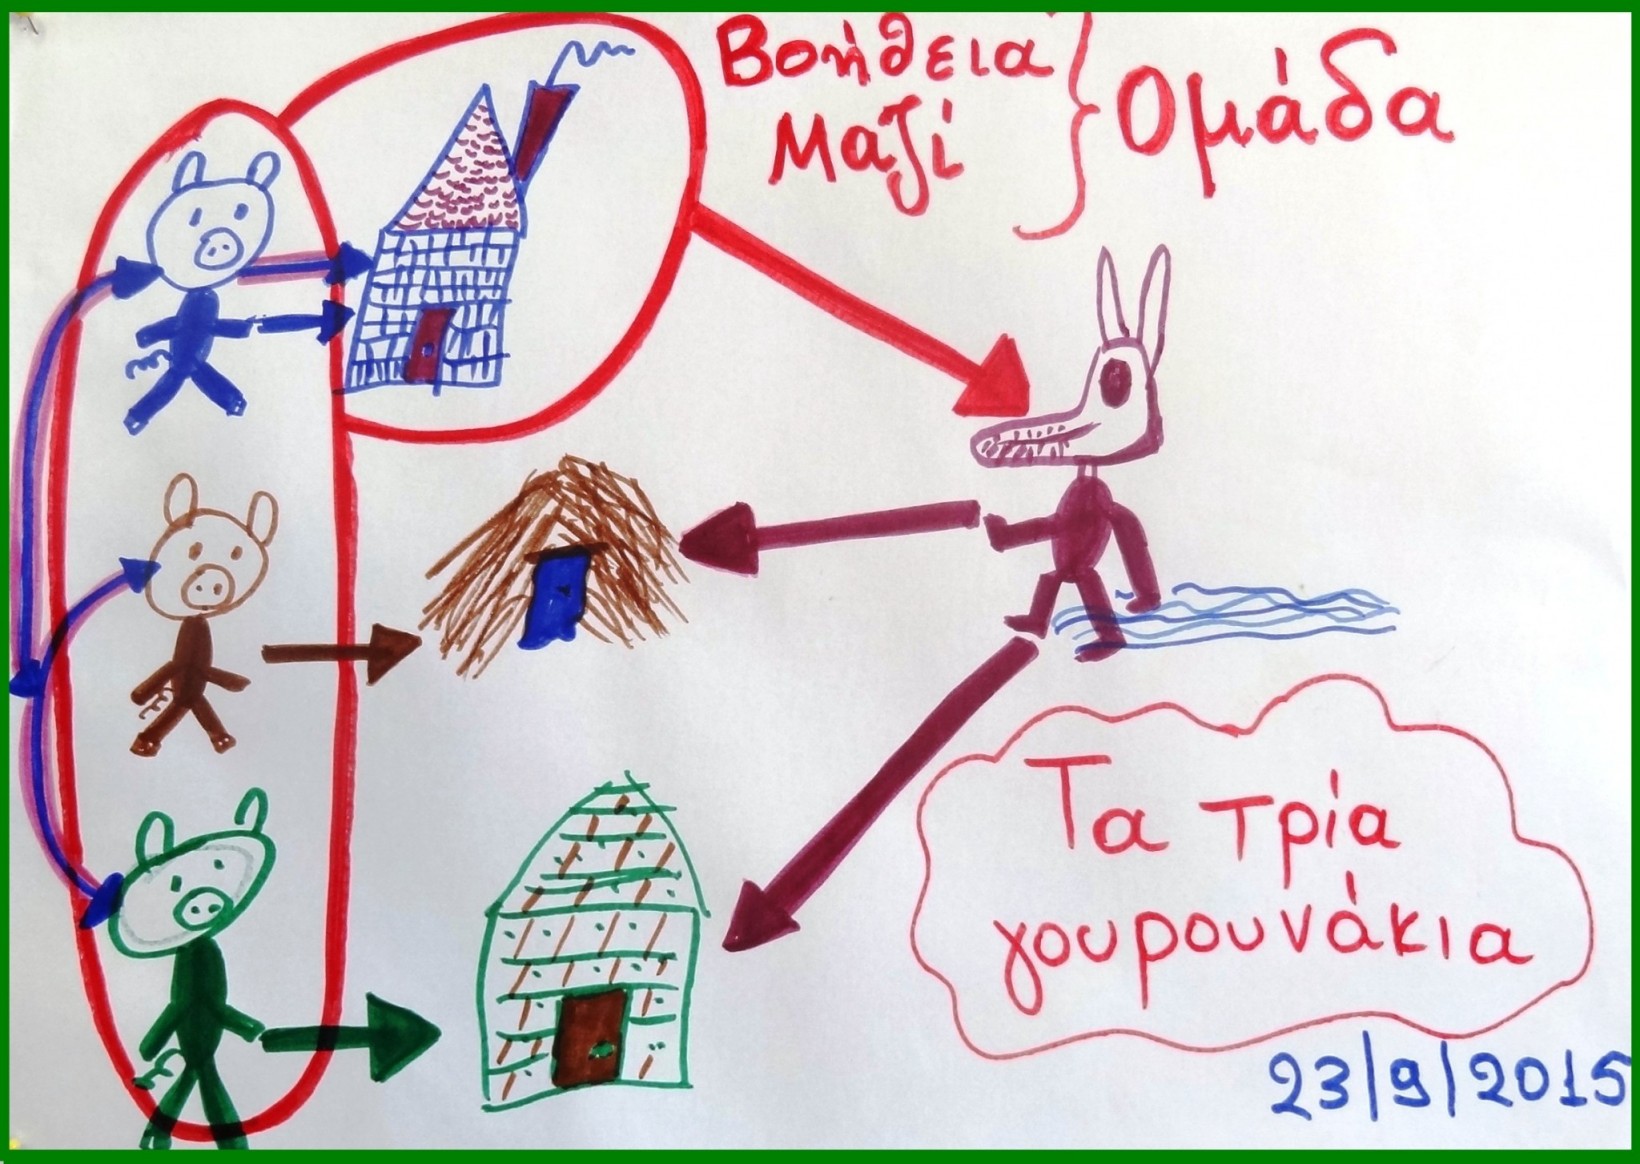 Βοήθεια
Μαζί
Ομάδα
Τα τρία
γουρουνάκια
23/9/2015